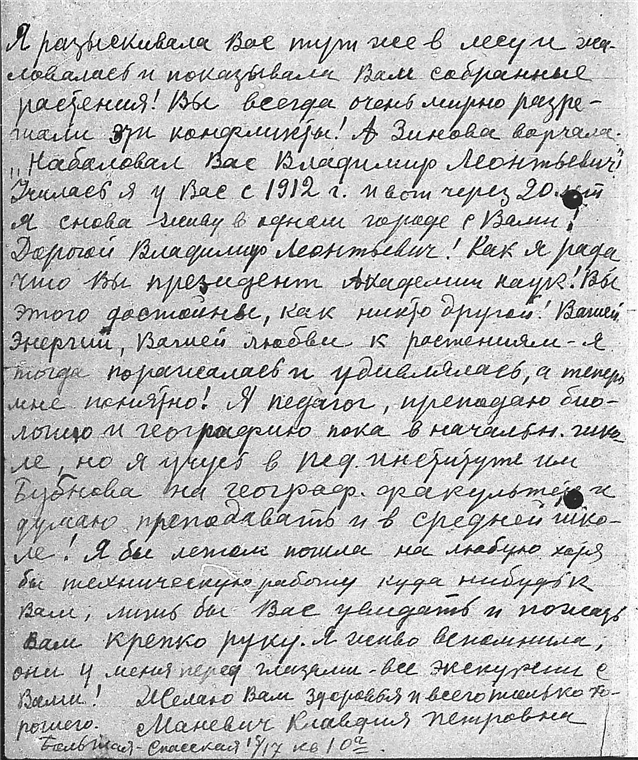 Я разыскивала Вас тут же в лесу и жа-
ловалась и показывала Вам собранные
растения! Вы всегда очень мирно разре-
шали эти конфликты! А Зинова ворчала.
"Набаловал Вас Владимир Леонтьевич"
Училась я у Вас с 1912 г. и вот через 20 лет
я снова живу в одном городе с Вами!
Дорогой Владимир Леонтьевич! Как я рада
что Вы президент Академии наук! Вы
этого достойны, как никто другой! Вашей
энергии, Вашей любви к растениям - я
тогда поражалась и удивлялась, а теперь
мне понятно! Я педагог, преподаю био-
логию и географию пока в начальн. шко-
ле, но я учусь в пед. институте им
Бубнова на географ. факультете и
думаю преподавать и в средней шко-
ле! Я бы летом пошла на любую хотя
бы техническую работу куда нибудь к
Вам, лишь бы Вас увидать и пожать
Вам крепко руку. Я живо вспомнила,
они у меня перед глазами - все экскурсии с
Вами! Желаю Вам здоровья и всего только хо-
рошего. Маневич Клавдия Петровна
Большая-Спасская 15/17 кв 10а.